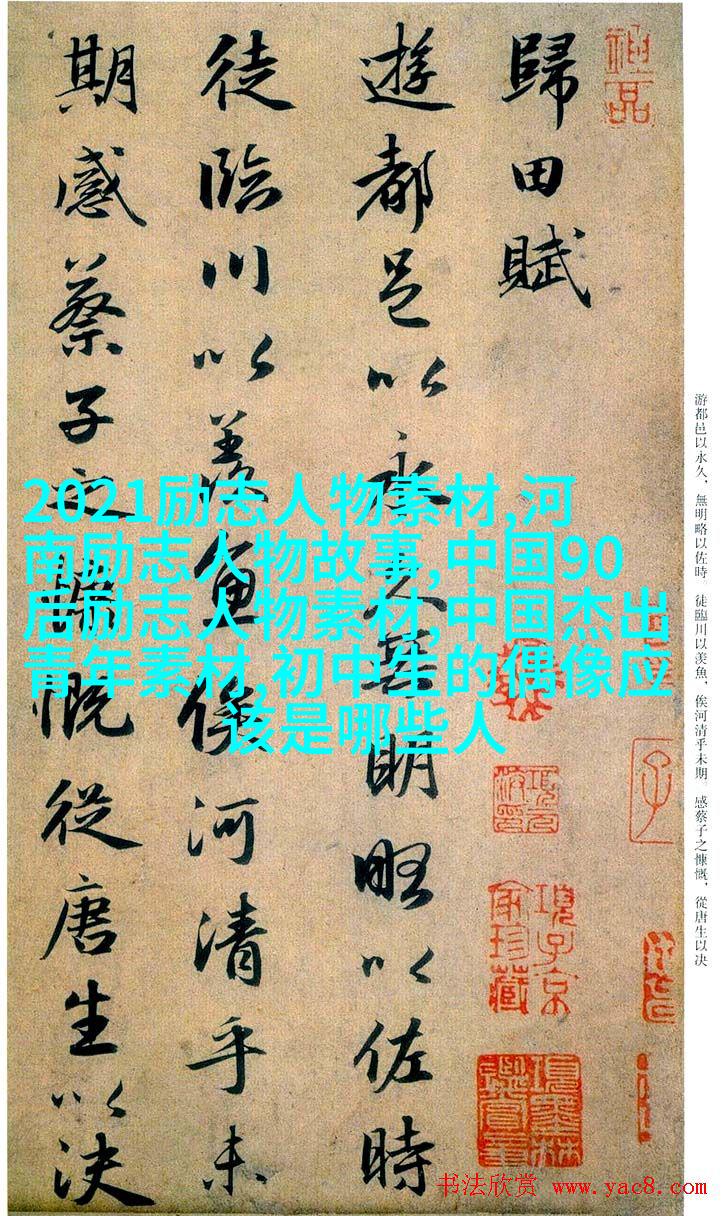 歸田賦
遊都邑以永久無明略以佐時
徒臨川以羨魚俟河清乎未
期感蔡子之慷慨從唐生以決
2021励志人物素材,河
南励志人物故事,中国90
后励志人物素材,中国杰出
青年素材,初中生的偶像应
该是哪些人
游都邑以永久，無明略以佐時。徒臨川以羨魚，俟河清乎未期。感蔡子之慷慨，從唐生以决
神品
子
項子京
家珍藏
項墨林
鑑賞章
书法欣赏 www.yac8.com